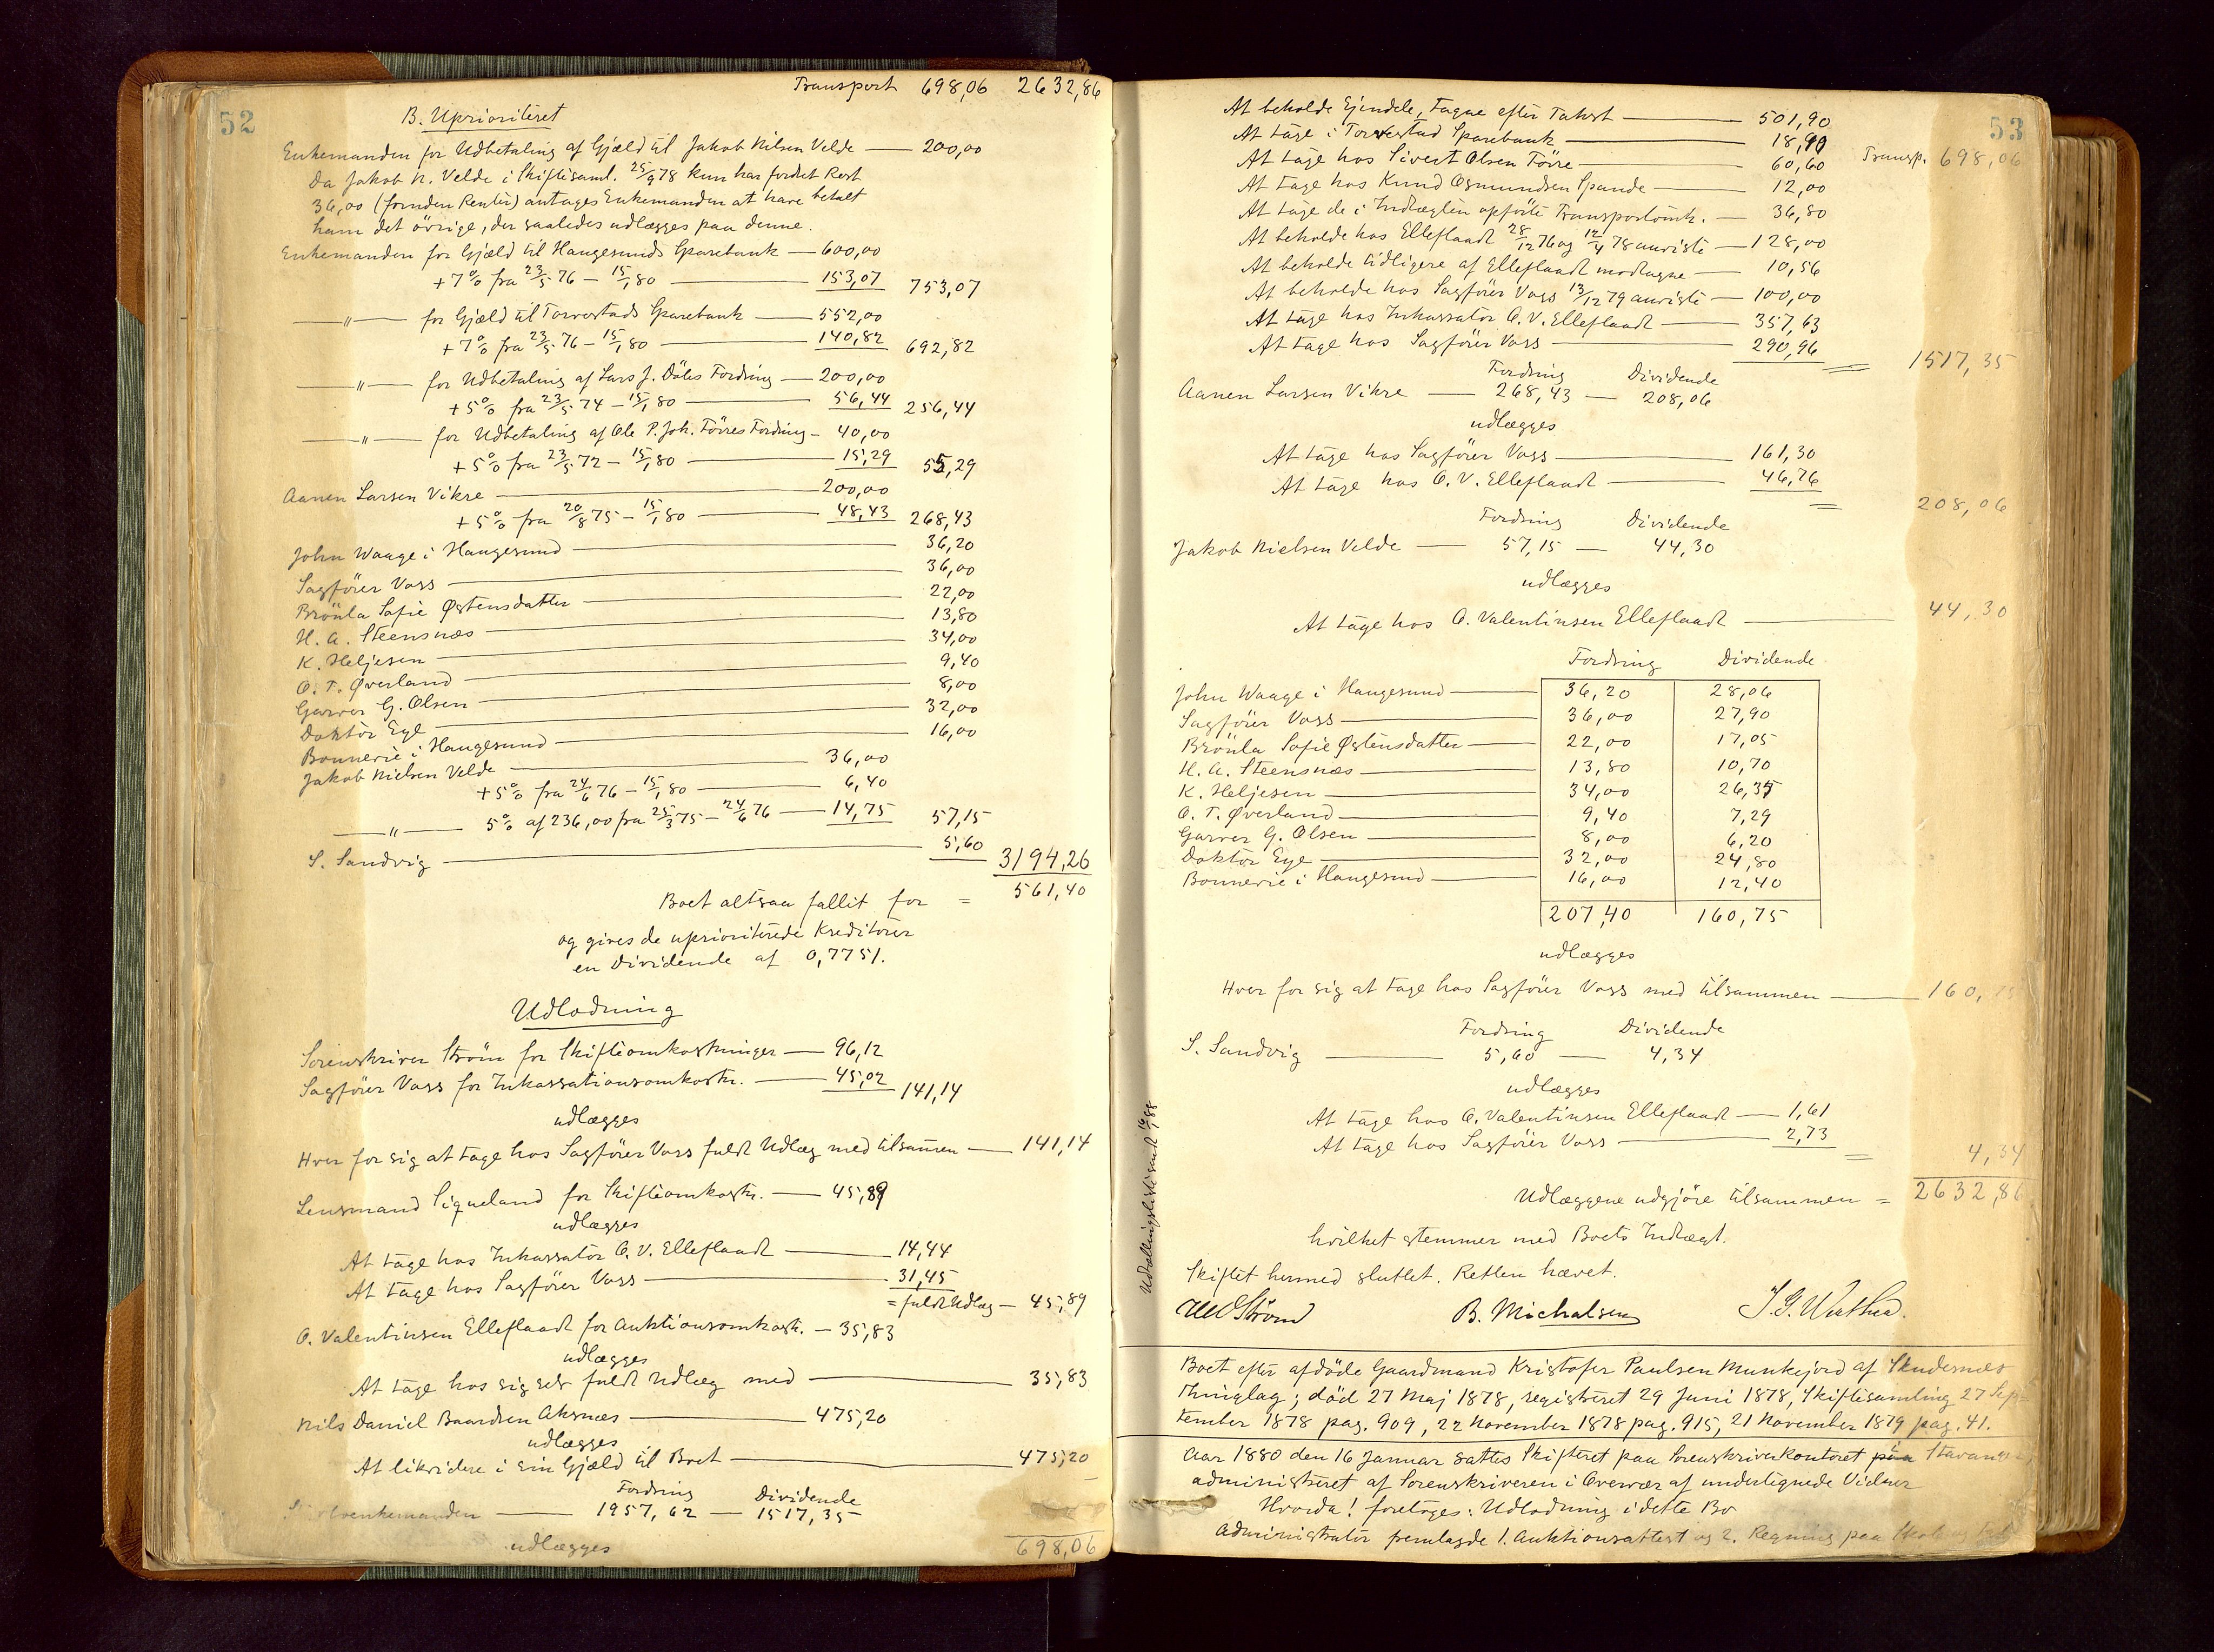 52
Transport 698,06 2632,86
B. Uprioriteret
Enkemanden for Udbetaling af Gjæld til Jakob Nilsen Velde — 200,00
Da Jakob N. Velde i Skiftesaml. 25/9 78 kun har fordret Rest
36,00 (foruden Renter) antages Enkemanden at have betalt
ham det övrige, der saaledes udlægges paa denne.
Enkemanden for Gjæld til Haugesunds Sparebank — 600,00
+ 7% fra 23/5 76 – 15/1 80 — 153,07 753,07
—〃— for Gjæld til Torvestads Sparebank — 552,00
+ 7% fra 23/5 76 – 15/1 80 — 140,82 692,82
—〃— for Udbetaling af Lars J. Döles Fordring — 200,00
+ 5% fra 23/5 74 – 15/1 80 — 56,44 256,44
—〃— for Udbetaling af Ole P. Joh. Förres Fordring – 40,00
+ 5% fra 23/5 72 – 15/1 80 — 15,29 55,29
Aanen Larsen Vikre — 200,00
+ 5% fra 20/8 75 – 15/1 80 — 48,43 268,43
John Waage i Haugesund — 36,20
Sagförer Voss — 36,00
Brönla Sofie Østensdatter — 22,00
H. A. Steensnæs — 13,80
K. Heljesen — 34,00
O. T. Øverland — 9,40
Garver G. Olsen — 8,00
Doktor Eye — 32,00
Bonnerie i Haugesund — 16,00
Jakob Nielsen Velde — 36,00
+ 5% fra 24/6 76 – 15/1 80 — 6,40
—〃— 5% af 236,00 fra 25/3 75 – 24/6 76 — 14,75 57,15
S. Sandvig — 5,60 3194,26
Boet altsaa fallit for = 561,40
og gives de uprioriterede Kreditorer
en Dividende af 0,7751.
Udlodning
Sorenskriver Ström for Skifteomkostninger — 96,12
Sagförer Voss for Inkassationsomkostn. — 45,02 141,14
udlægges
Hver for sig at tage hos Sagförer Voss fuldt Udlæg med tilsammen — 141,14
Lensmand Siqueland for Skifteomkostn. — 45,89
udlægges
At tage hos Inkassator O. V. Elleflaadt — 14,44
At tage hos Sagförer Voss — 31,45
= fuldt Udlæg — 45,89
O. Valentinsen Elleflaadt for Auktionsomkostn. — 35,83
udlægges
At tage hos sig selv fuldt Udlæg med — 35,83
Nils Daniel Baardsen Aksnæs — 475,20
udlægges
At likvidere i sin Gjæld til Boet — 475,20
Fordring Dividende
enkemanden — 1957,62 — 1517,35
udlægges 698,06
53
Transp. 698,06
At beholde Ejendele, tagne efter Takst — 501,90
At tage i Torvestad Sparebank — 18,90
At tage hos Sivert Olsen Förre — 60,60
At tage hos Knud Osmundsen Spande — 12,00
At tage de i Indtægten opförte Transportomk. — 36,80
At beholde hos Elleflaadt 28/12 76 og 12/4 78 anviste — 128,00
At beholde tidligere af Elleflaadt modtagne — 10,56
At beholde hos Sagförer Voss 13/12 79 anviste — 100,00
At tage hos Inkassator O. V. Elleflaadt — 357,63
At tage hos Sagförer Voss — 290,96
= 1517,35
Fordring Dividende
Aanen Larsen Vikre — 268,43 — 208,06
udlægges
At tage hos Sagförer Voss — 161,30
At tage hos O. V. Elleflaadt — 46,76
= 208,06
Fordring Dividende
Jakob Nielsen Velde — 57,15 — 44,30
udlægges
At tage hos O. Valentinsen Elleflaadt — 44,30
Fordring Dividende
John Waage i Haugesund — 36,20 28,06
Sagförer Voss — 36,00 27,90
Brönla Sofie Østensdatter — 22,00 17,05
H. A. Steensnæs — 13,80 10,70
K. Heljesen — 34,00 26,35
O. T. Øverland — 9,40 7,29
Garver G. Olsen — 8,00 6,20
Doktor Eye — 32,00 24,80
Bonnerie i Haugesund — 16,00 12,40
207,40 160,75
udlægges
Hver for sig at tage hos Sagförer Voss med tilsammen — 160,75
Fordring Dividende
S. Sandvig — 5,60 — 4,34
udlægges
At tage hos O. Valentinsen Elleflaadt — 1,61
At tage hos Sagförer Voss — 2,73
= 4,34
Udlæggene udgjöre tilsammen = 2632,86
hvilket stemmer med Boets Indtægt.
Skiftet hermed sluttet. Retten hævet.
Ström B. Michalsen
Boet efter afdöde Gaardmand Kristofer Paulsen Munkejord af Skudesnes
Thinglag; död 27 Maj 1878, registreret 29 Juni 1878, Skiftesamling 27 Sep-
tember 1878 pag. 909, 22 November 1878 pag. 915, 21 November 1879 pag. 41.
Aar 1880 den 16 Januar sattes Skifteret paa Sorenskriverkontoret paa Stavanger,
administreret af Sorenskriveren i Overvær af undertegnede Vidner
Hvorda! foretoges: Udlodning i dette Bo
Administrator fremlagde 1. Auktionsattest og 2. Regning paa